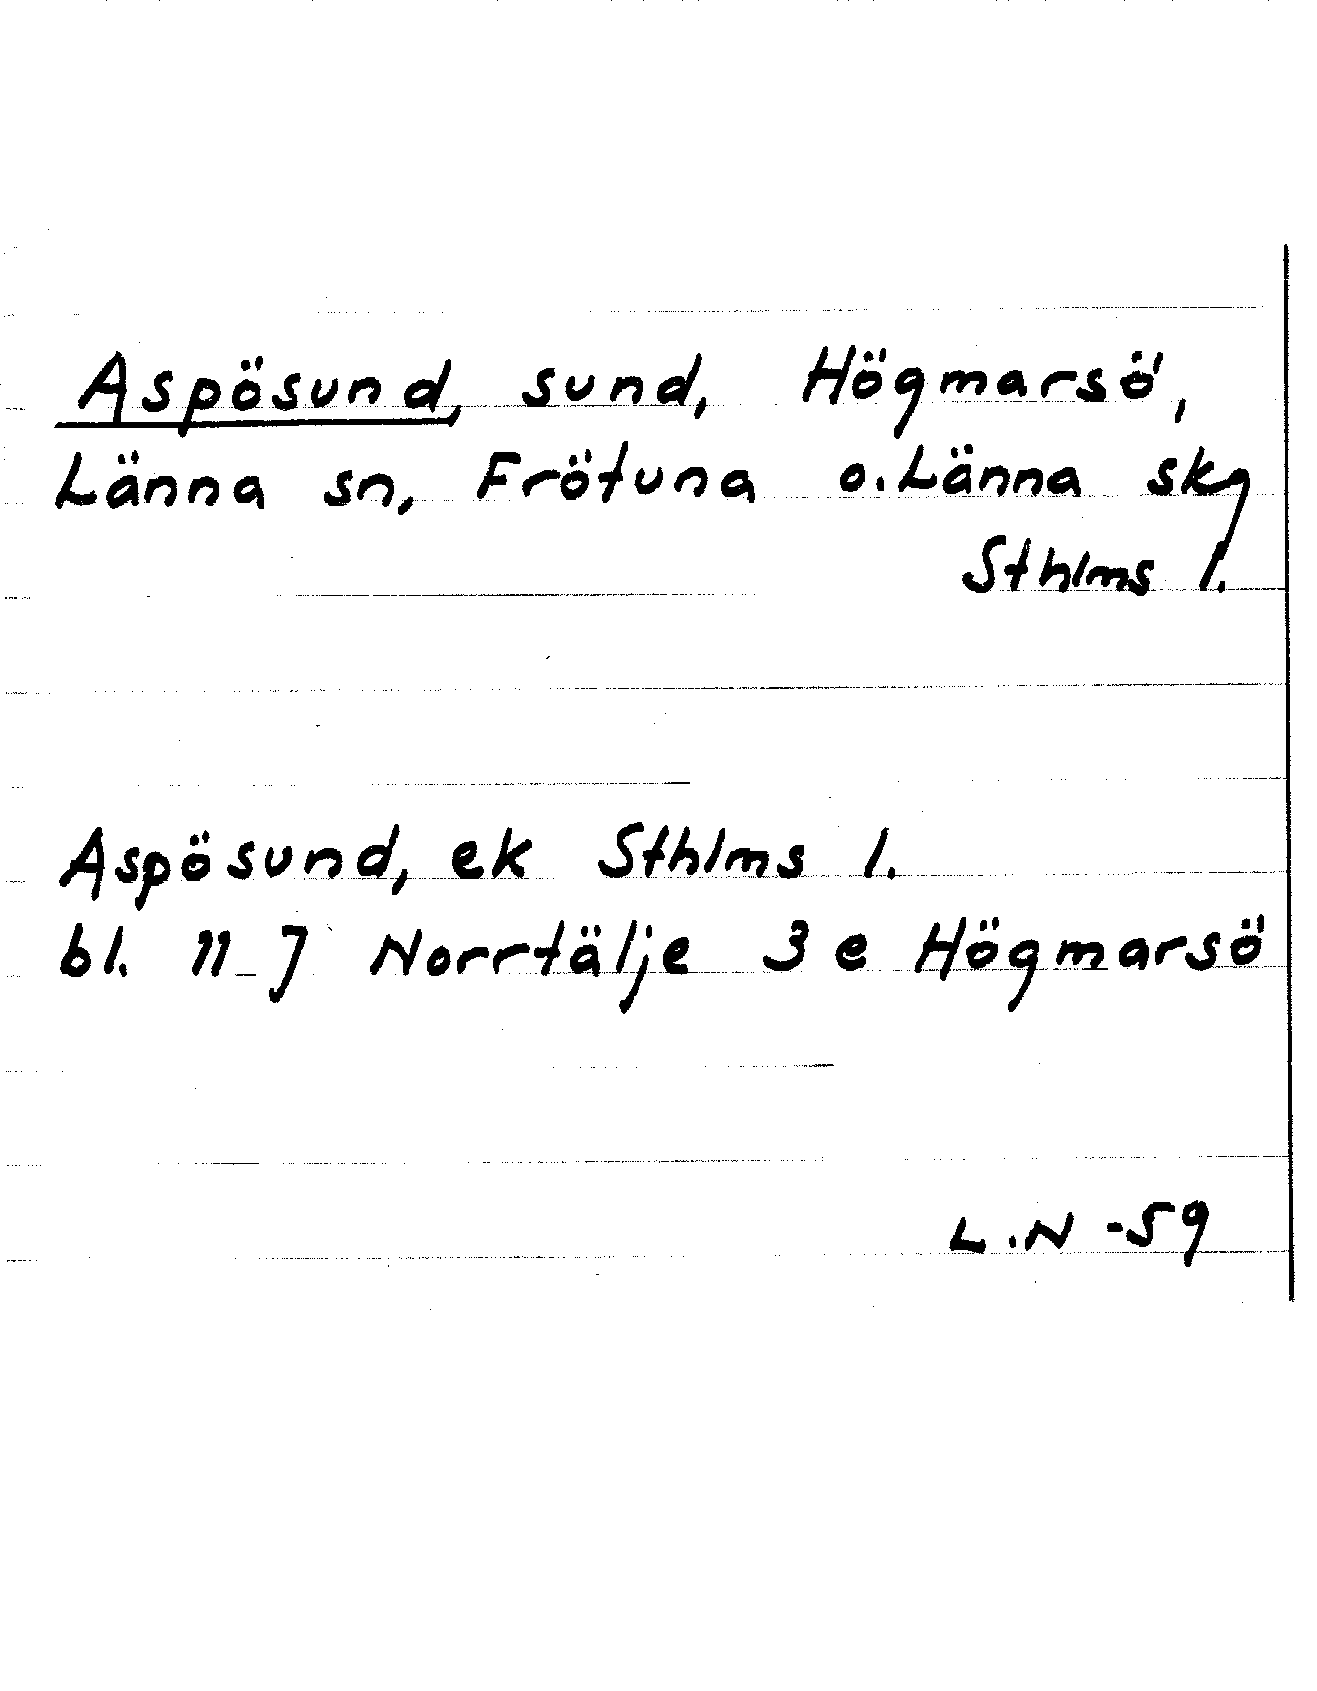 Aspösund, sund, Högmarsö,
Länna sn, Frötuna o. Länna skg
Sthlms l.
Aspösund, ek Sthlms l.
bl. 11 J Norrtälje 3 e Högmarsö
L.N -59